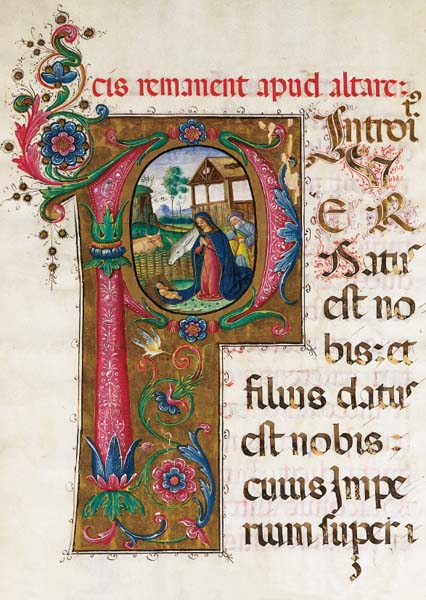 cis remanent apud altare:
Introit
P V
E R
Natus
est no
bis: et
filius datus
est nobis:
cuius Impe
rium super